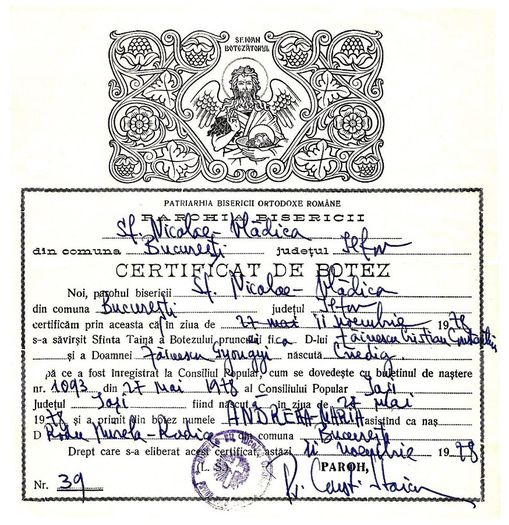 SF. IOAN
BOTEZĂTORUL
PATRIARHIA BISERICII ORTODOXE ROMÂNE
PAROHIA BISERICII
Sf. Nicolae - Vlădica
din comuna București județul Ilfov
CERTIFICAT DE BOTEZ
Noi, parohul bisericii Sf. Nicolae - Vlădica
din comuna București județul Ilfov
certificăm prin aceasta că în ziua de 27 mai 11 noembrie 1978
s-a săvîrșit Sfînta Taină a Botezului pruncului fica D-lui Făinescu Cristian
și a Doamnei Făinescu Gyongyi născută
pă ce a fost înregistrat la Consiliul Popular, cum se dovedește cu buletinul de naștere
nr. 1093 din 27 Mai 1978 al Consiliului Popular Iași
Județul Iași fiind născut în ziua de 27 mai
1978 și a primit din botez numele ANDREEA-MARIA asistînd ca naș
D Radu Rodica din comuna București
Drept care s-a eliberat acest certificat astăzi 11 noembrie 1978
(L. S.) PAROH,
Nr. 39 Pr.